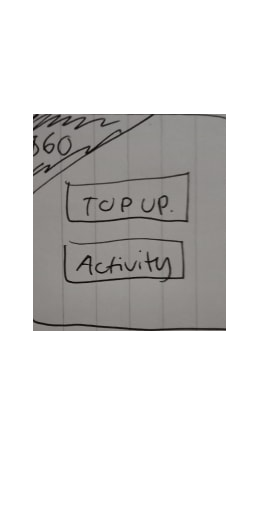 360
TOP UP.
Activity